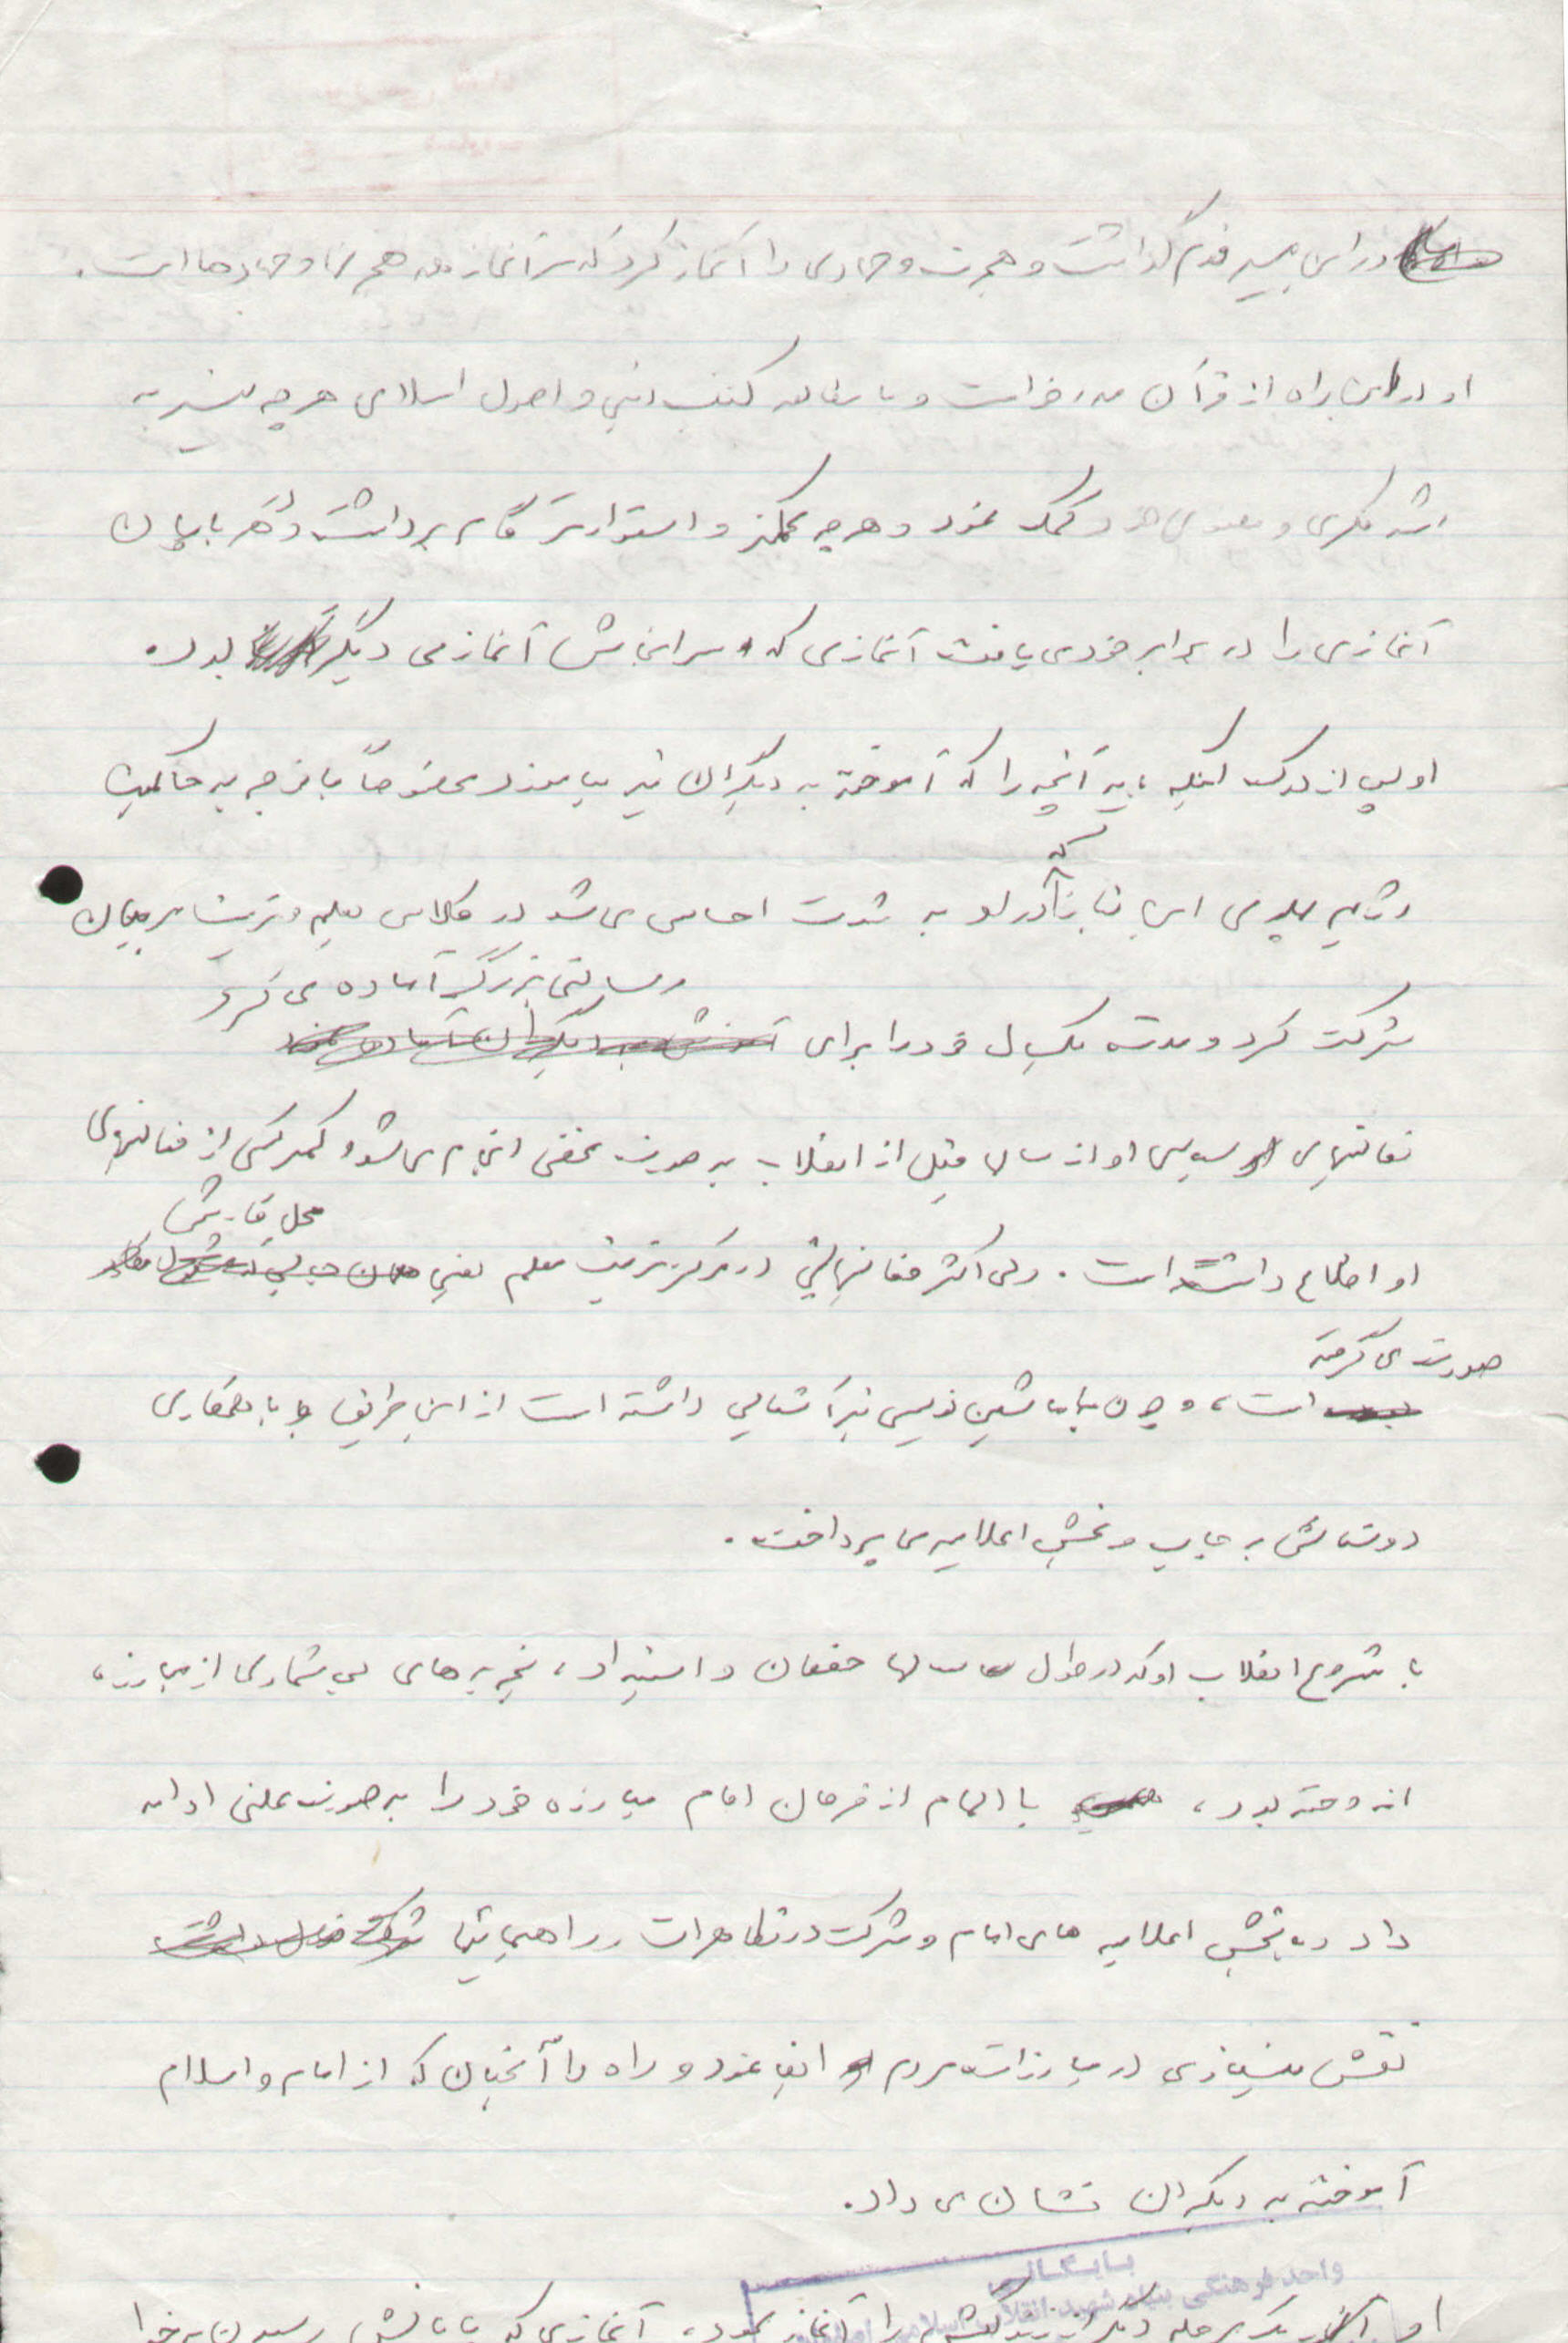 در این مسیر قدم گذاشت و هجرت و جهادی را آغاز کرد که سرآغاز همه هجرتها و جهادها است.
او در این راه از قرآن مدد خواست و با مطالعه کتب دینی و اصول اسلامی هر چه بیشتر به
رشد فکری و معنوی خود کمک نمود و هر چه محکمتر و استوارتر گام برداشت و اگر با پایان
آغازی را در برابر خود می یافت آغازی که سرانجامش آغازی دیگر بود.
او پس از درک اینکه باید آنچه را که آموخته به دیگران نیز بیاموزد مخصوصاً با توجه به حاکمیت
رژیم پلید که این نیاز در او به شدت احساس می شد در کلاس تعلیم و تربیت مربیان
شرکت کرد و مدت یکسال خود را برای رسالتی بزرگ آماده می کرد
فعالیتهای سیاسی او از سالها قبل از انقلاب به صورت مخفی انجام می شد و کمتر کسی از فعالیتهای
او اطلاع داشته است. ولی اکثر فعالیتهایش در مرکز تربیت معلم یعنی محل کارش
صورت می گرفته است، و چون با ماشین نویسی نیز آشنایی داشته است از این طریق با همکاری
دوستانش به چاپ و پخش اعلامیه می پرداخت.
با شروع انقلاب او که در طول سالها خفقان و استبداد، تجربه های بی شماری از مبارزه
اندوخته بود، با الهام از فرمان امام مبارزه خود را به صورت علنی ادامه
داد و با پخش اعلامیه های امام و شرکت در تظاهرات و راهپیمائیها
نقش بسیاری در مبارزات مردم ایفا نمود و راه را آنچنان که از امام و اسلام
آموخته به دیگران نشان می داد.
بایگانی
واحد فرهنگی بنیاد شهید انقلاب اسلامی
را آغاز نمود، آغازی که پایانش رسیدن به خدا